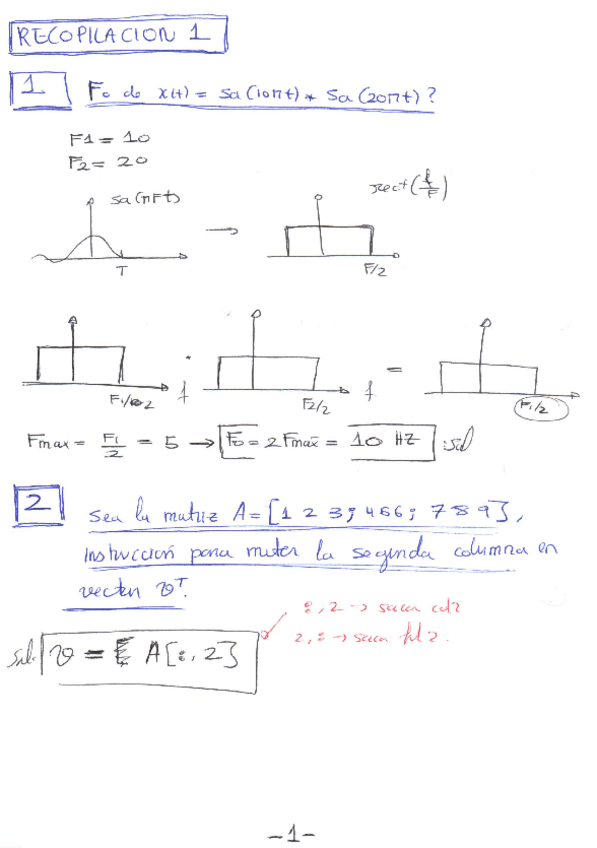 RECOPILACION 1
1 Fo de x(t) = Sa(10πt) * Sa(20πt)?
F1 = 10
F2 = 20
Sa(πFt) → rect(f/F)
T F/2
F1/2 f · F2/2 f = F1/2
Fmax = F1/2 = 5 → Fo = 2Fmax = 10 HZ :sol
2 Sea la matriz A = [1 2 3; 4 5 6; 7 8 9],
instrucción para meter la segunda columna en
vector v^T.
:, 2 → sacar col 2
2, : → sacar fil 2.
sol: v = A[:, 2]
-1-